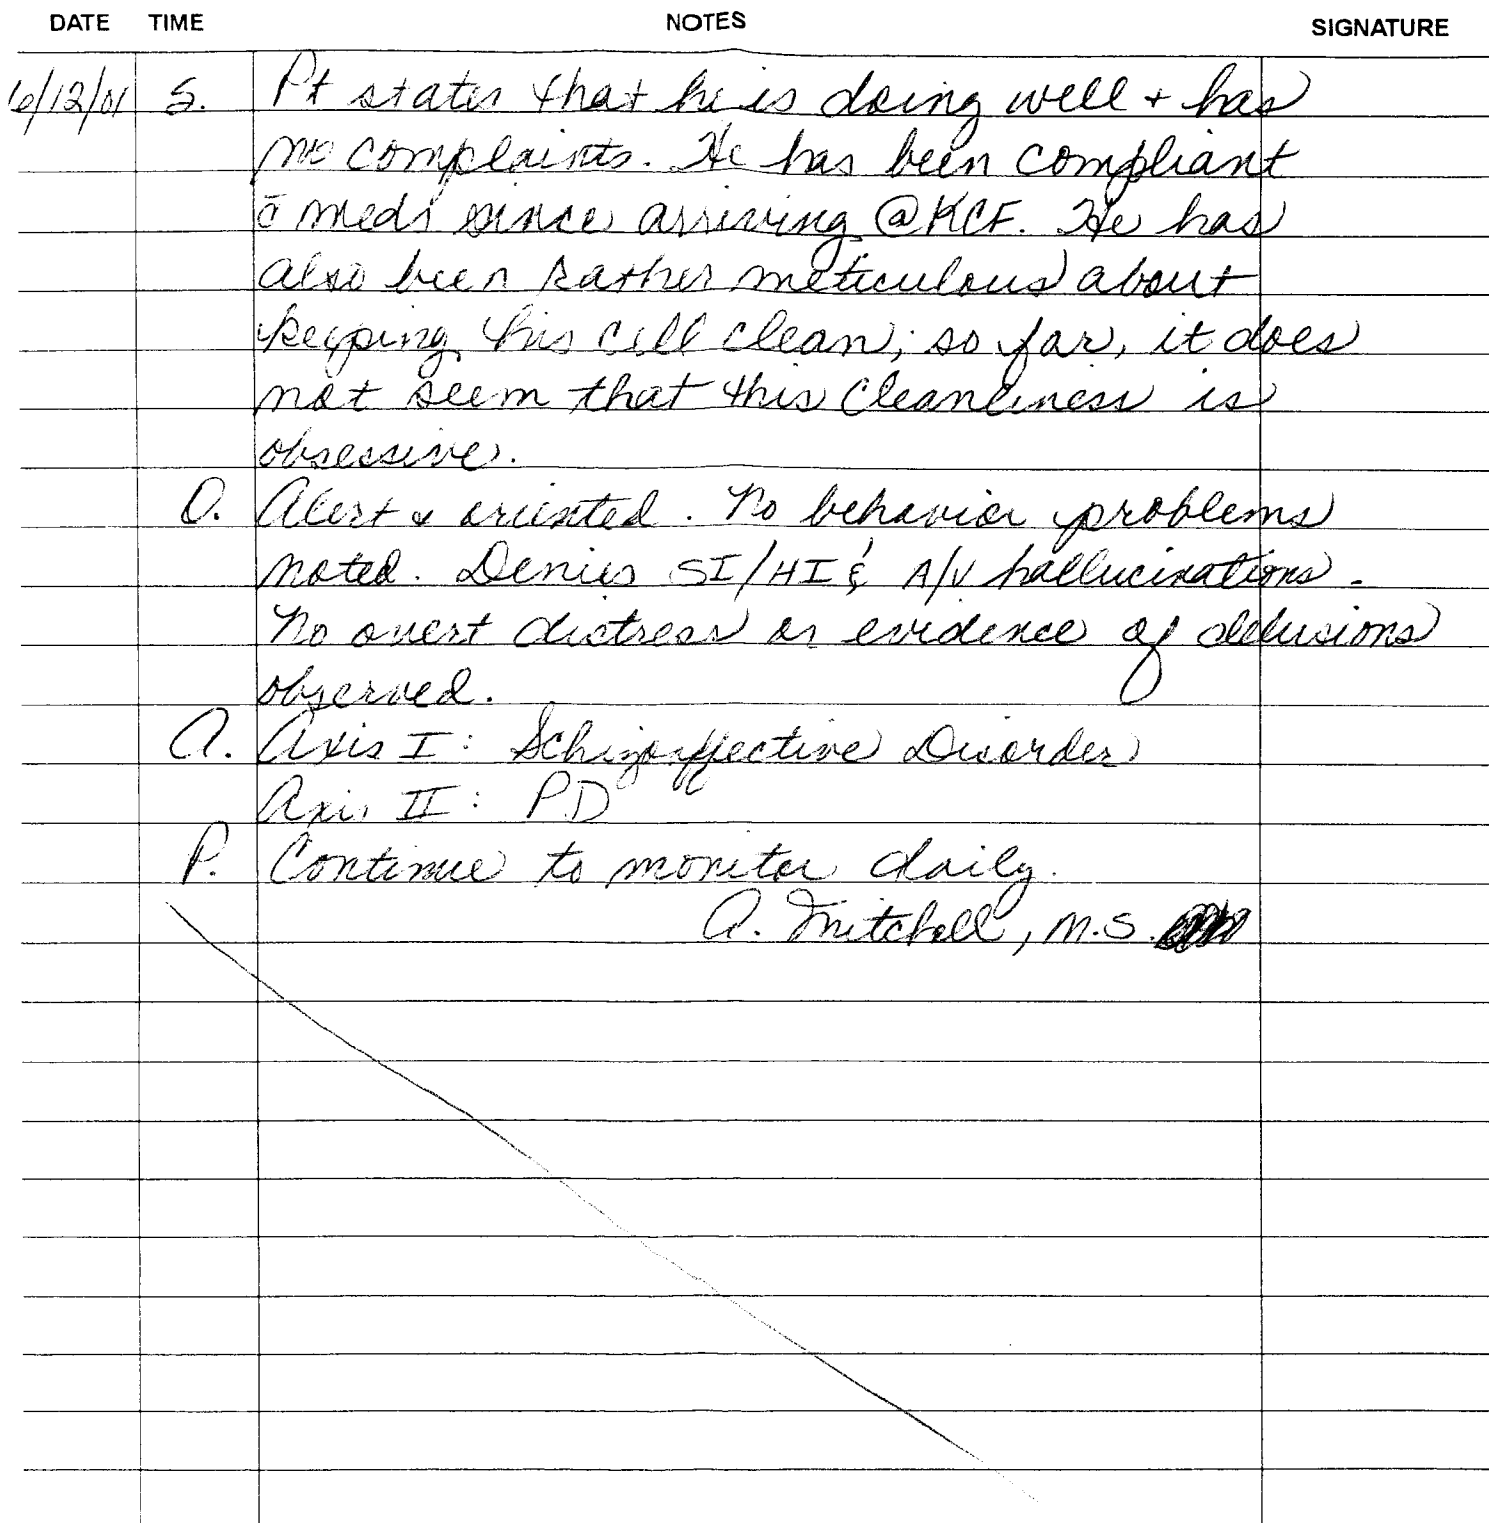 DATE TIME NOTES SIGNATURE
6/12/01 S. Pt states that he is doing well + has
no complaints. He has been compliant
c̄ meds since arriving @KCF. He has
also been rather meticulous about
keeping his cell clean; so far, it does
not seem that this cleanliness is
obsessive.
O. Alert & oriented. No behavior problems
noted. Denies SI/HI & A/V hallucinations.
No overt distress or evidence of delusions
observed.
A. Axis I: Schizoaffective Disorder
Axis II: PD
P. Continue to monitor daily.
A. Mitchell, M.S.